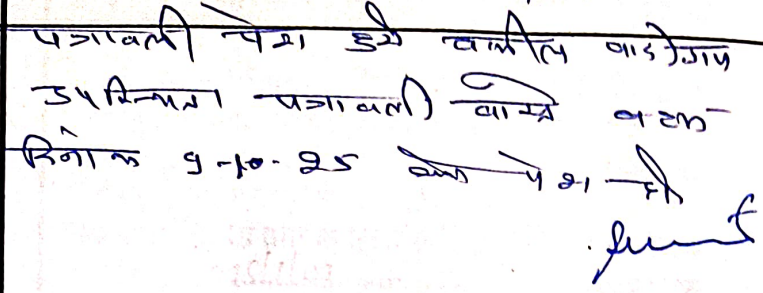 पत्रावली पेश हुये वकील वादीगण
उपस्थित। पत्रावली वास्ते बहस
दिनांक 9-10-25 को पेश हो